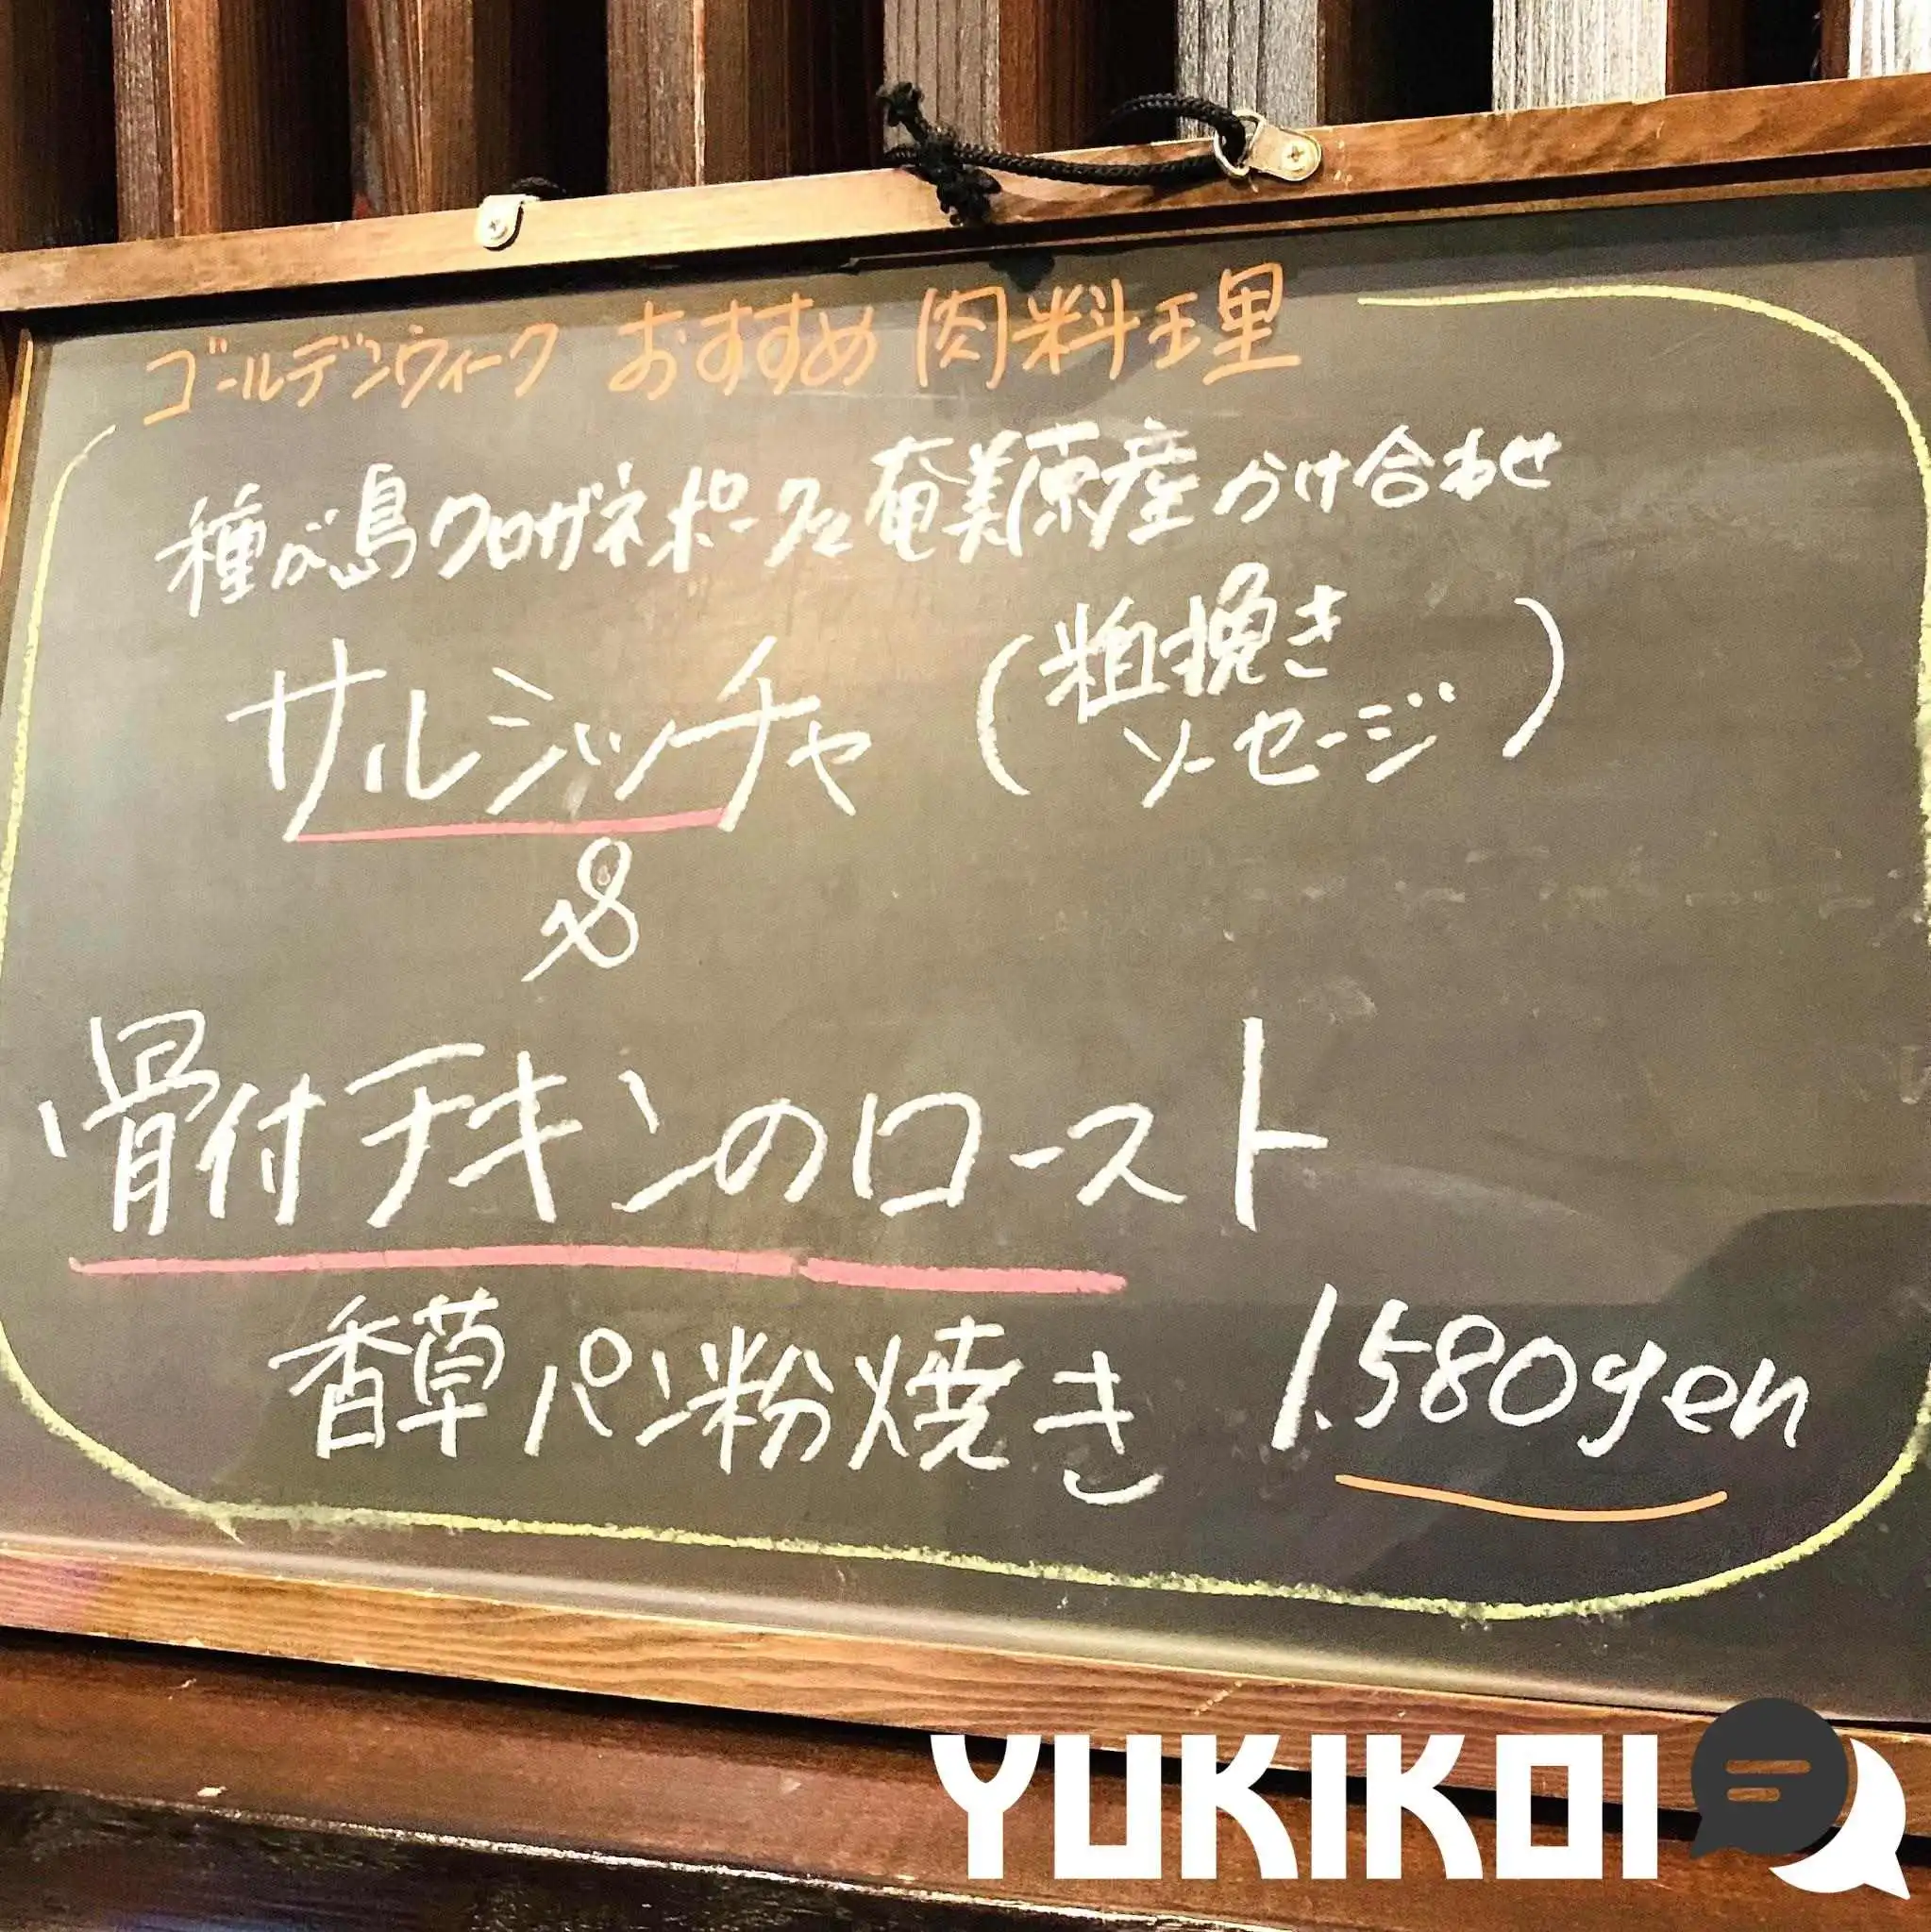 ゴールデンウィーク おすすめ 肉料理
種が島クロザネポークと奄美原産かけ合わせ
サルシッチャ (粗挽き
ソーセージ)
&
骨付チキンのロースト
香草パン粉焼き 1.580yen
YUKIKOI